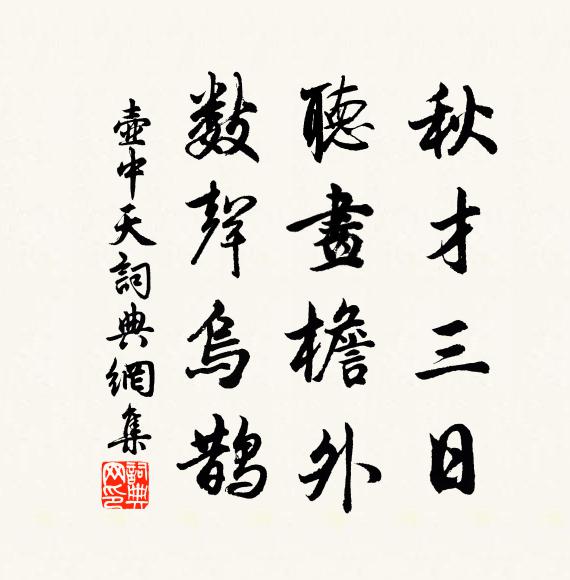 秋才三日
聽畫檐外
數聲烏鵲
壺中天詞典網集
詞典網印